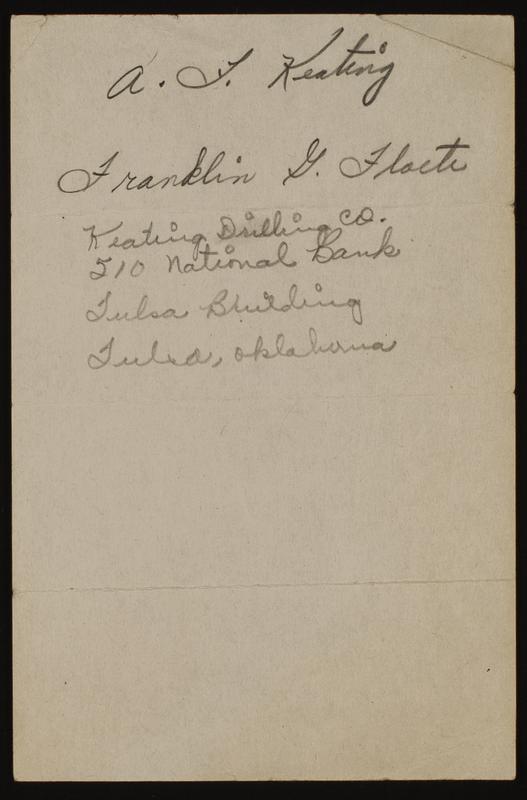 A. F. Keating
Franklin G. Floete
Keating Drilling Co.
510 National Bank
Tulsa Building
Tulsa, Oklahoma